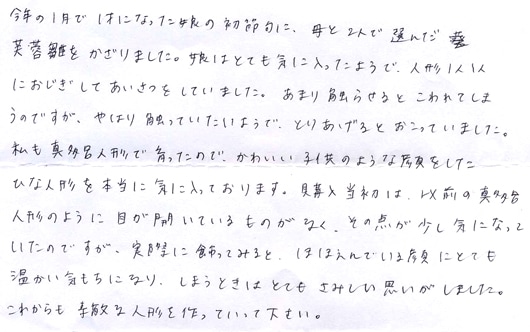 今年の1月で1才になった娘の初節句に、母と2人で選んだ
芙蓉雛をかざりました。娘はとても気に入ったようで、人形1人1人
におじぎしてあいさつをしていました。あまり触らせるとこわれてしま
うのですが、やはり触っていたいようで、とりあげるとおこっていました。
私も真多呂人形で育ったので、かわいい子供のような顔をした
ひな人形を本当に気に入っております。購入当初は、以前の真多呂
人形のように目が開いているものがなく、その点が少し気になって
いたのですが、実際に飾ってみると、ほほえんでいる顔にとても
温かい気もちになり、しまうときはとてもさみしい思いがしました。
これからも素敵な人形を作っていって下さい。